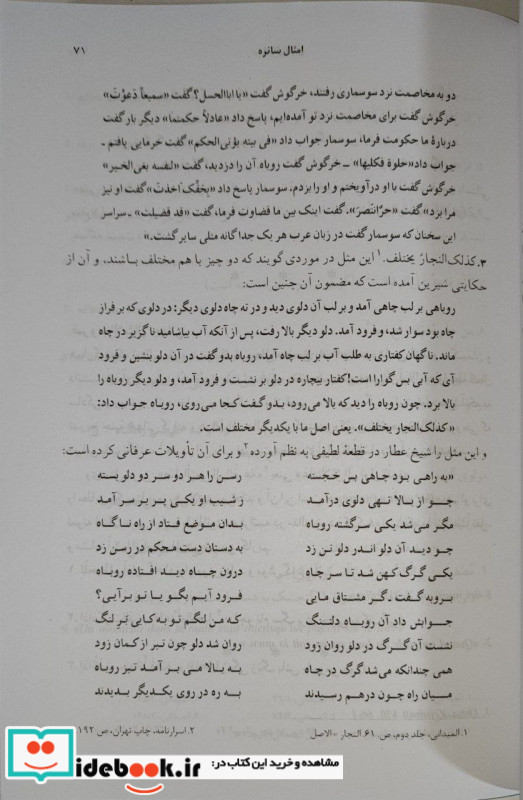 امثال سائره
۷۱
دو به مخاصمت نزد سوسماری رفتند، خرگوش گفت «یا اباالحسل؟ گفت «سمیعاً دَعَوْتَ»
خرگوش گفت برای مخاصمت نزد تو آمده‌ایم، پاسخ داد «عادلاً حکمتما» دیگر بار گفت
دربارهٔ ما حکومت فرما، سوسمار جواب داد «فی بیته یؤتی‌الحکم» گفت خرمایی یافتم ـ
جواب داد «حلوة فکلیها» ـ خرگوش گفت روباه آن را دزدید، گفت «لنفسه بغی‌الخیر»
خرگوش گفت با او درآویختم و او را بزدم. سوسمار پاسخ داد «بحقّک اَخذتَ» گفت او نیز
مرا بزد» گفت «حرٌّانتصرَ». گفت اینک بین ما قضاوت فرما، گفت «قد قضیت» ـ سراسر
این سخنان که سوسمار گفت در زبان عرب هر یک جداگانه مثلی سایر گشت.»
۳. کذلک‌النجارُ یختلف.۱ این مثل در موردی گویند که دو چیز با هم مختلف باشند، و آن از
حکایتی شیرین آمده است که مضمون آن چنین است:
روباهی بر لب چاهی آمد و بر لب آن دلوی دید و در ته چاه دلوی دیگر: در دلوی که بر فراز
چاه بود سوار شد، و فرود آمد. دلو دیگر بالا رفت، پس از آنکه آب بیاشامید ناگزیر در چاه
ماند. ناگهان کفتاری به طلب آب بر لب چاه آمد، روباه بدو گفت در آن دلو بنشین و فرود
آی که آبی بس گوارا است! کفتار بیچاره در دلو بر نشست و فرود آمد، و دلو دیگر روباه را
بالا برد. چون روباه را دید که بالا می‌رود، بدو گفت کجا می‌روی، روباه جواب داد:
«کذلک‌النجار یختلف». یعنی اصل ما با یکدیگر مختلف است.
و این مثل را شیخ عطار در قطعهٔ لطیفی به نظم آورده۲ و برای آن تأویلات عرفانی کرده است:
«به راهی بود چاهی بس خجسته رسن را هر دو سر دو دلو بسته
چو از بالا تهی دلوی درآمد ز شیب او یکی پر بر سر آمد
مگر می‌شد یکی سرگشته روباه بدان موضع فتاد از راه ناگاه
چو دید آن دلو اندر دلو تن زد به دستان دست محکم در رسن زد
یکی گرگ کهن شد تا سر چاه درون چاه دید افتاده روباه
بروبه گفت ـ گر مشتاق مایی فرود آیم بگو یا تو برآیی؟
جوابش داد آن روباه دلتنگ که من لنگم تو به کایی بَرِ لنگ
نشست آن گرگ در دلو روان زود روان شد دلو چون تیر از کمان زود
همی چندانکه می‌شد گرگ در چاه به بالا می بر آمد تیز روباه
میان راه چون درهم رسیدند به ره در روی یکدیگر بدیدند
۱. المیدانی، جلد دوم، ص. ۶۱. النجار =الاصل
۲. اسرارنامه، چاپ تهران، ص ۱۹۲
iranketab
مشاهده و خرید این کتاب در:
idebook.ir